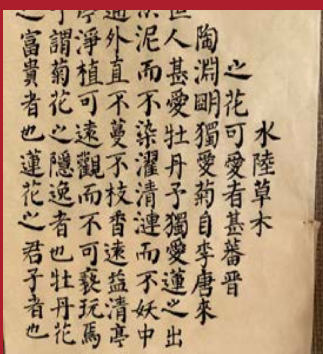 水陸草木
之花可愛者甚蕃晋
陶淵眀獨愛菊自李唐來
世人甚愛牡丹予獨愛蓮之出
泥而不染濯清漣而不妖中
通外直不蔓不枝香遠益清亭
亭淨植可遠觀而不可褻玩焉
予謂菊花之隱逸者也牡丹花
之富貴者也蓮花之君子者也